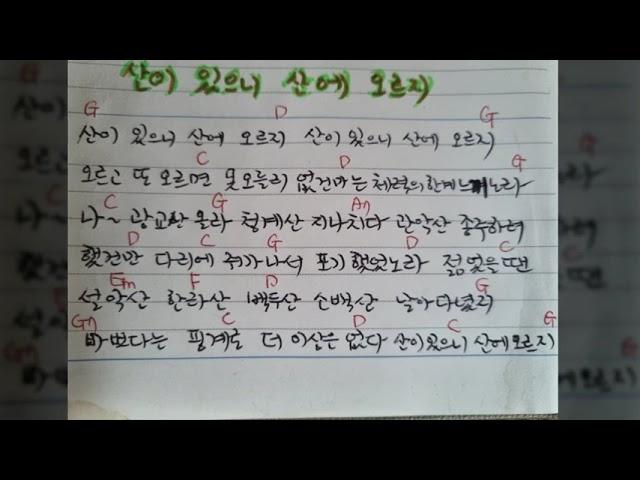 산이 있으니 산에 오르지
G D G
산이 있으니 산에 오르지 산이 있으니 산에 오르지
C D G
오르고 또 오르면 못오를리 없건마는 체력의한계 느끼노라
C G Am
나~ 광교산 올라 청계산 지나치다 관악산 종주하려
D C G D C
했건만 다리에 쥐가나서 포기했었노라 젊었을땐
Em F D G
설악산 한라산 백두산 소백산 날아다녔지
Gm C D C G
바쁘다는 핑계로 더 이상은 없다 산이있으니 산에오르지